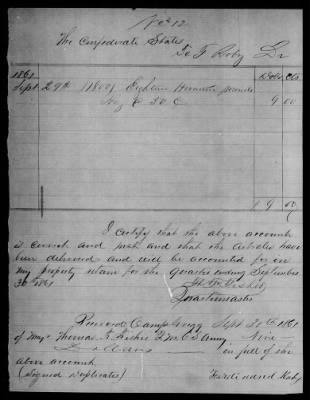 No 12
The Confederate States
To F Roby Dr
1861 Dolls Cts
Sept. 29th 1800 Eighteen Hundred pounds
Hay @ 50 C 9 00
$ 9 00
I certify that the above account
is correct and just and that the articles have
been delivered and will be accounted for in
my property return for the quarter ending September
30th 1861
Quartermaster
Received Camp Gregg Sept 30th 1861
of Majr Thomas R. Fisher Q M C S Army Nine
Dollars in full of the
above account
(Signed Duplicates) Ferdinand Roby